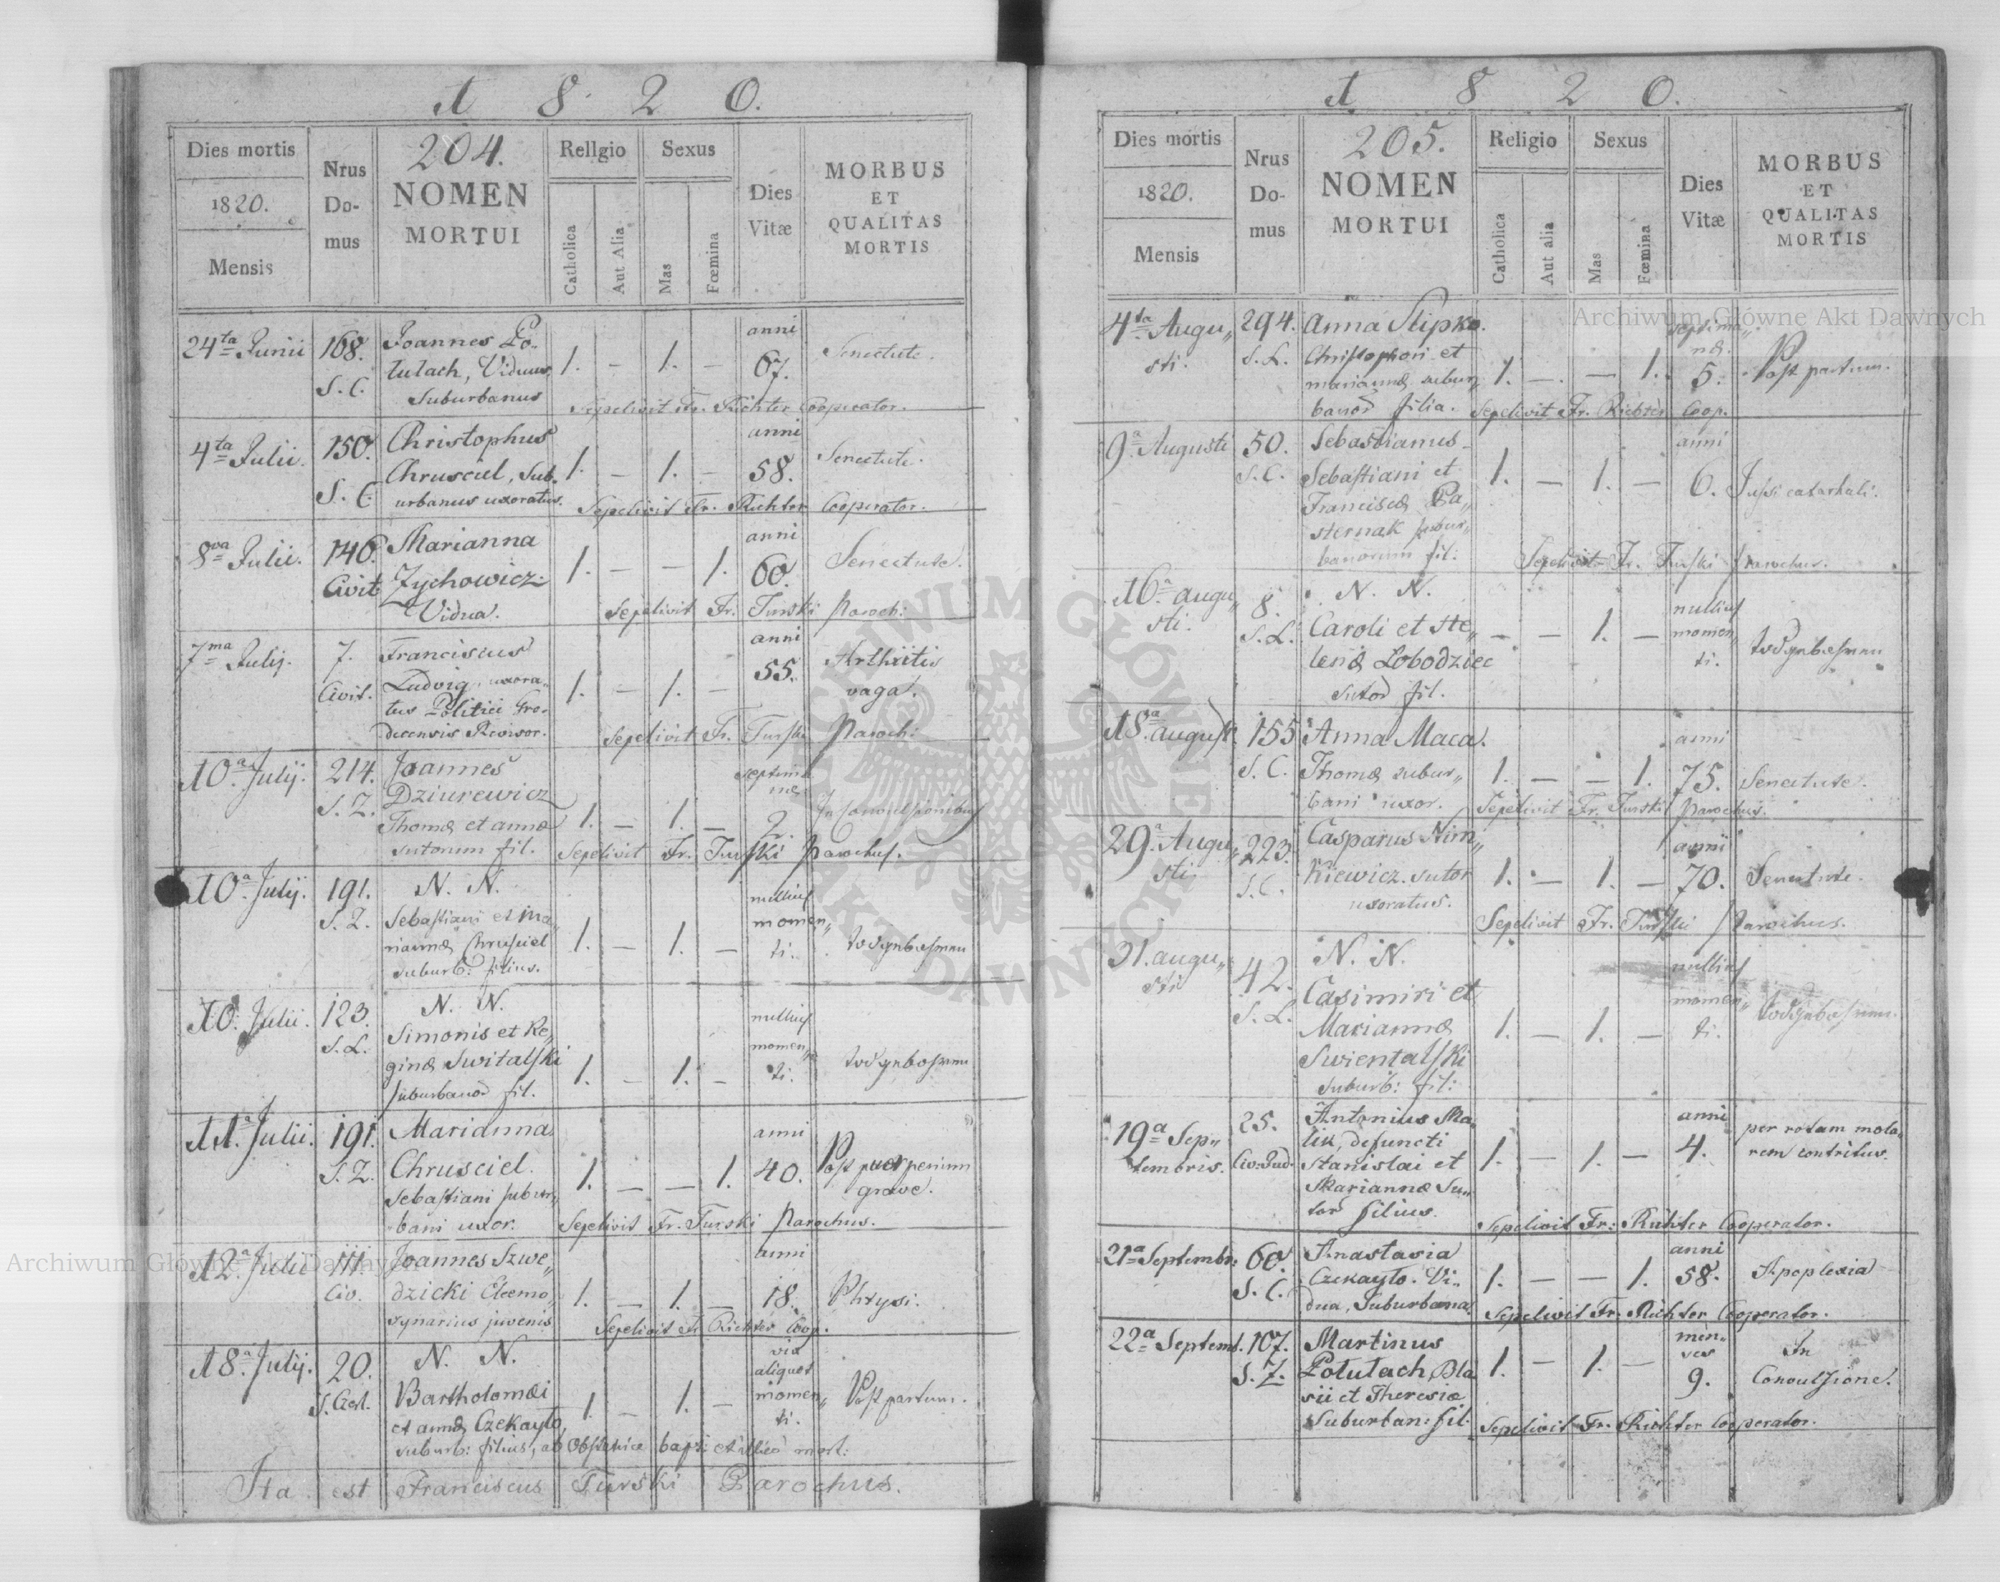 1 8 2 0.
Dies mortis
1820.
Mensis
Nrus
Do-
mus
204.
NOMEN
MORTUI
Rellgio
Catholica
Aut Alia
Sexus
Mas
Fœmina
Dies
Vitæ
MORBUS
ET
QUALITAS
MORTIS
24ta Junii 168. Joannes Po-
S. C. tulach, Viduus,
Suburbanus
1. — 1. — anni
67. Senectute.
Sepelivit Fr. Richter Cooperator.
4ta Julii. 150. Christophus
S. C. Chrusciel, Sub-
urbanus uxoratus.
1. — 1. — anni
58. Senectute.
Sepelivit Fr. Richter Cooperator.
8va Julii. 146. Marianna
Civit Zychowicz
Vidua.
1. — — 1. anni
60. Senectute.
Sepelivit Fr. Turski Paroch:
7ma Julij. 7. Franciscus
Civit. Ludvig, uxora-
tus Politici Gro-
decensis Revisor.
1. — 1. — anni
55. Arthritis
vaga.
Sepelivit Fr. Turski Paroch:
10a Julij. 214. Joannes
S. Z. Dziurewicz
Thomæ et annæ
sutorum fil.
1. — 1. — septima
næ
2. In convulsionibus
Sepelivit Fr. Turski Parochus.
10a Julij. 191. N. N.
S. Z. Sebastiani et Ma-
riannæ Chrusciel
suburb: filius.
1. — 1. — nullius
momen„
ti.
10. Julii. 123. N. N.
S. L. Simonis et Re-
ginæ Switalski
suburbanor fil.
1. — 1. — nullius
momen„
ti.
11a Julii. 191. Marianna
S. Z. Chrusciel.
Sebastiani subur„
bani uxor.
1. — — 1. anni
40. Post puerperium
grave.
Sepelivit Fr. Turski Parochus.
12a Julii 111. Joannes Szwe„
Civ. dzicki Eleemo„
synarius juvenis
1. — 1. — anni
18. Phtysi.
Sepelivit Fr Richter Coop.
18a Julij. 20. N. N.
Bartholomæi
et annæ Czekayło
1. — 1. — vix
aliquot
momen„
ti. Post partum.
suburb: filius, ab Obstetrice bapt: et illico mort:
Ita est Franciscus Turski Parochus.
1 8 2 0.
Dies mortis
1820.
Mensis
Nrus
Do-
mus
205.
NOMEN
MORTUI
Religio
Catholica
Aut alia
Sexus
Mas
Fœmina
Dies
Vitæ
MORBUS
ET
QUALITAS
MORTIS
4ta Augu„ 294. Anna Slipko.
sti. S. L. Christophori et
mariannæ subur„
banor filia.
1. — — 1. septima„
næ
5. Post partum.
Sepelivit Fr. Richter Coop.
9a Augusti 50. Sebastianus
S. C. Sebastiani et
Franciscæ Pa„
sternak subur„
banorum fil:
1. — 1. — anni
6. Tussi catarhali.
Sepelivit Fr. Turski Parochus.
16a augu„ 8. N. N.
sti. S. L. Caroli et He„
lenæ Lobodziec
sutor fil.
— — 1. — nullius
momen„
ti.
18a august. 155 Anna Maca.
S. C. Thomæ subur„
bani uxor.
1. — — 1. anni
75. Senectute.
Sepelivit Fr. Turski Parochus.
29a Augu„ 223. Casparus Nim„
sti S. C. kiewicz. sutor
uxoratus.
1. — 1. — anni
70. Senectute.
Sepelivit Fr. Turski Parochus.
31. augu„ 42. N. N.
sti S. L. Casimiri et
Mariannæ
Swientalski
suburb: fil:
1. — 1. — nullius
momen„
ti.
19a Sep„ 25. Antonius Ma-
tembris. Civ. Jud. lik, defuncti
Stanislai et
Mariannæ Su„
tor filius.
1. — 1. — anni
4. per rotam mola-
rem contritus.
Sepelivit Fr: Richter Cooperator.
21a Septembr: 60. Anastasia
S. C. Czekayło. Vi-
dua, Suburbana
1. — — 1. anni
58. Apoplexia
Sepelivit Fr. Richter Cooperator.
22a Septemb. 107. Martinus
S. Z. Potulach, Bla
sii et Theresiæ
Suburban: fil.
1. — 1. — men-
ses
9. In
Convulsione.
Sepelivit Fr. Richter Cooperator.
Archiwum Główne Akt Dawnych
Archiwum Główne Akt Dawnych
ARCHIWUM GŁÓWNE AKT DAWNYCH